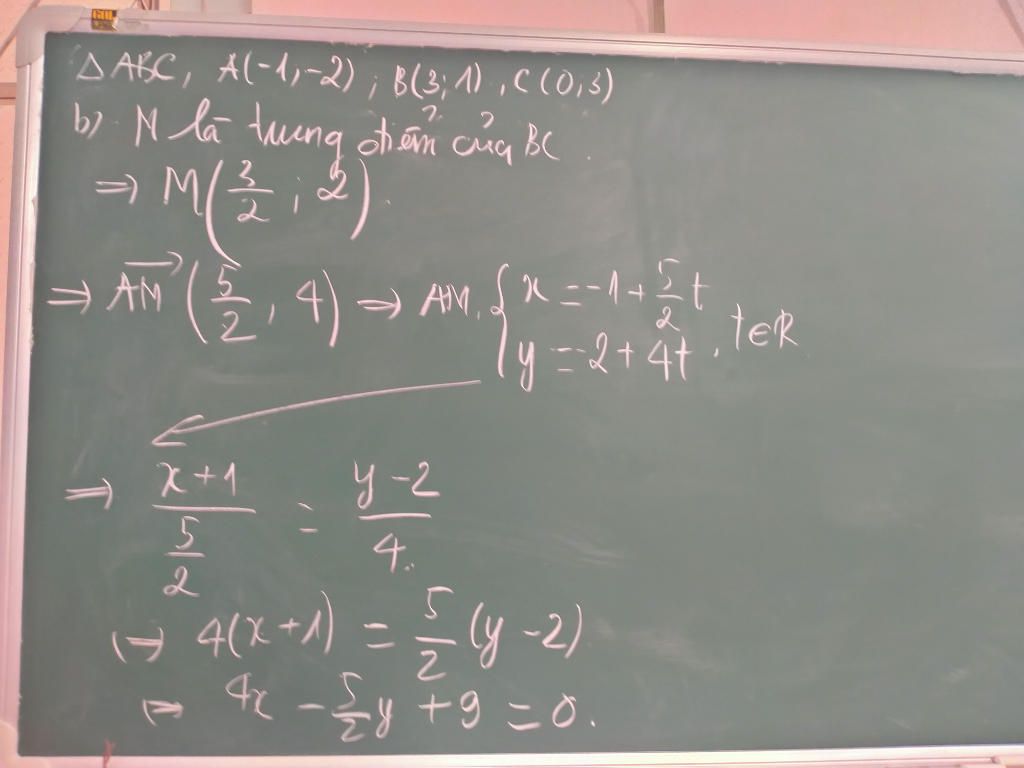 Δ ABC, A(-1,-2); B(3;1), C(0;3)
b) M là trung điểm của BC.
=> M(3/2; 2).
=> AM→ (5/2, 4) => AM: { x = -1 + 5/2 t
y = -2 + 4t, t∈R
=> (x+1)/(5/2) = (y-2)/4.
(=> 4(x+1) = 5/2 (y-2)
(=> 4x - 5/2 y + 9 = 0.